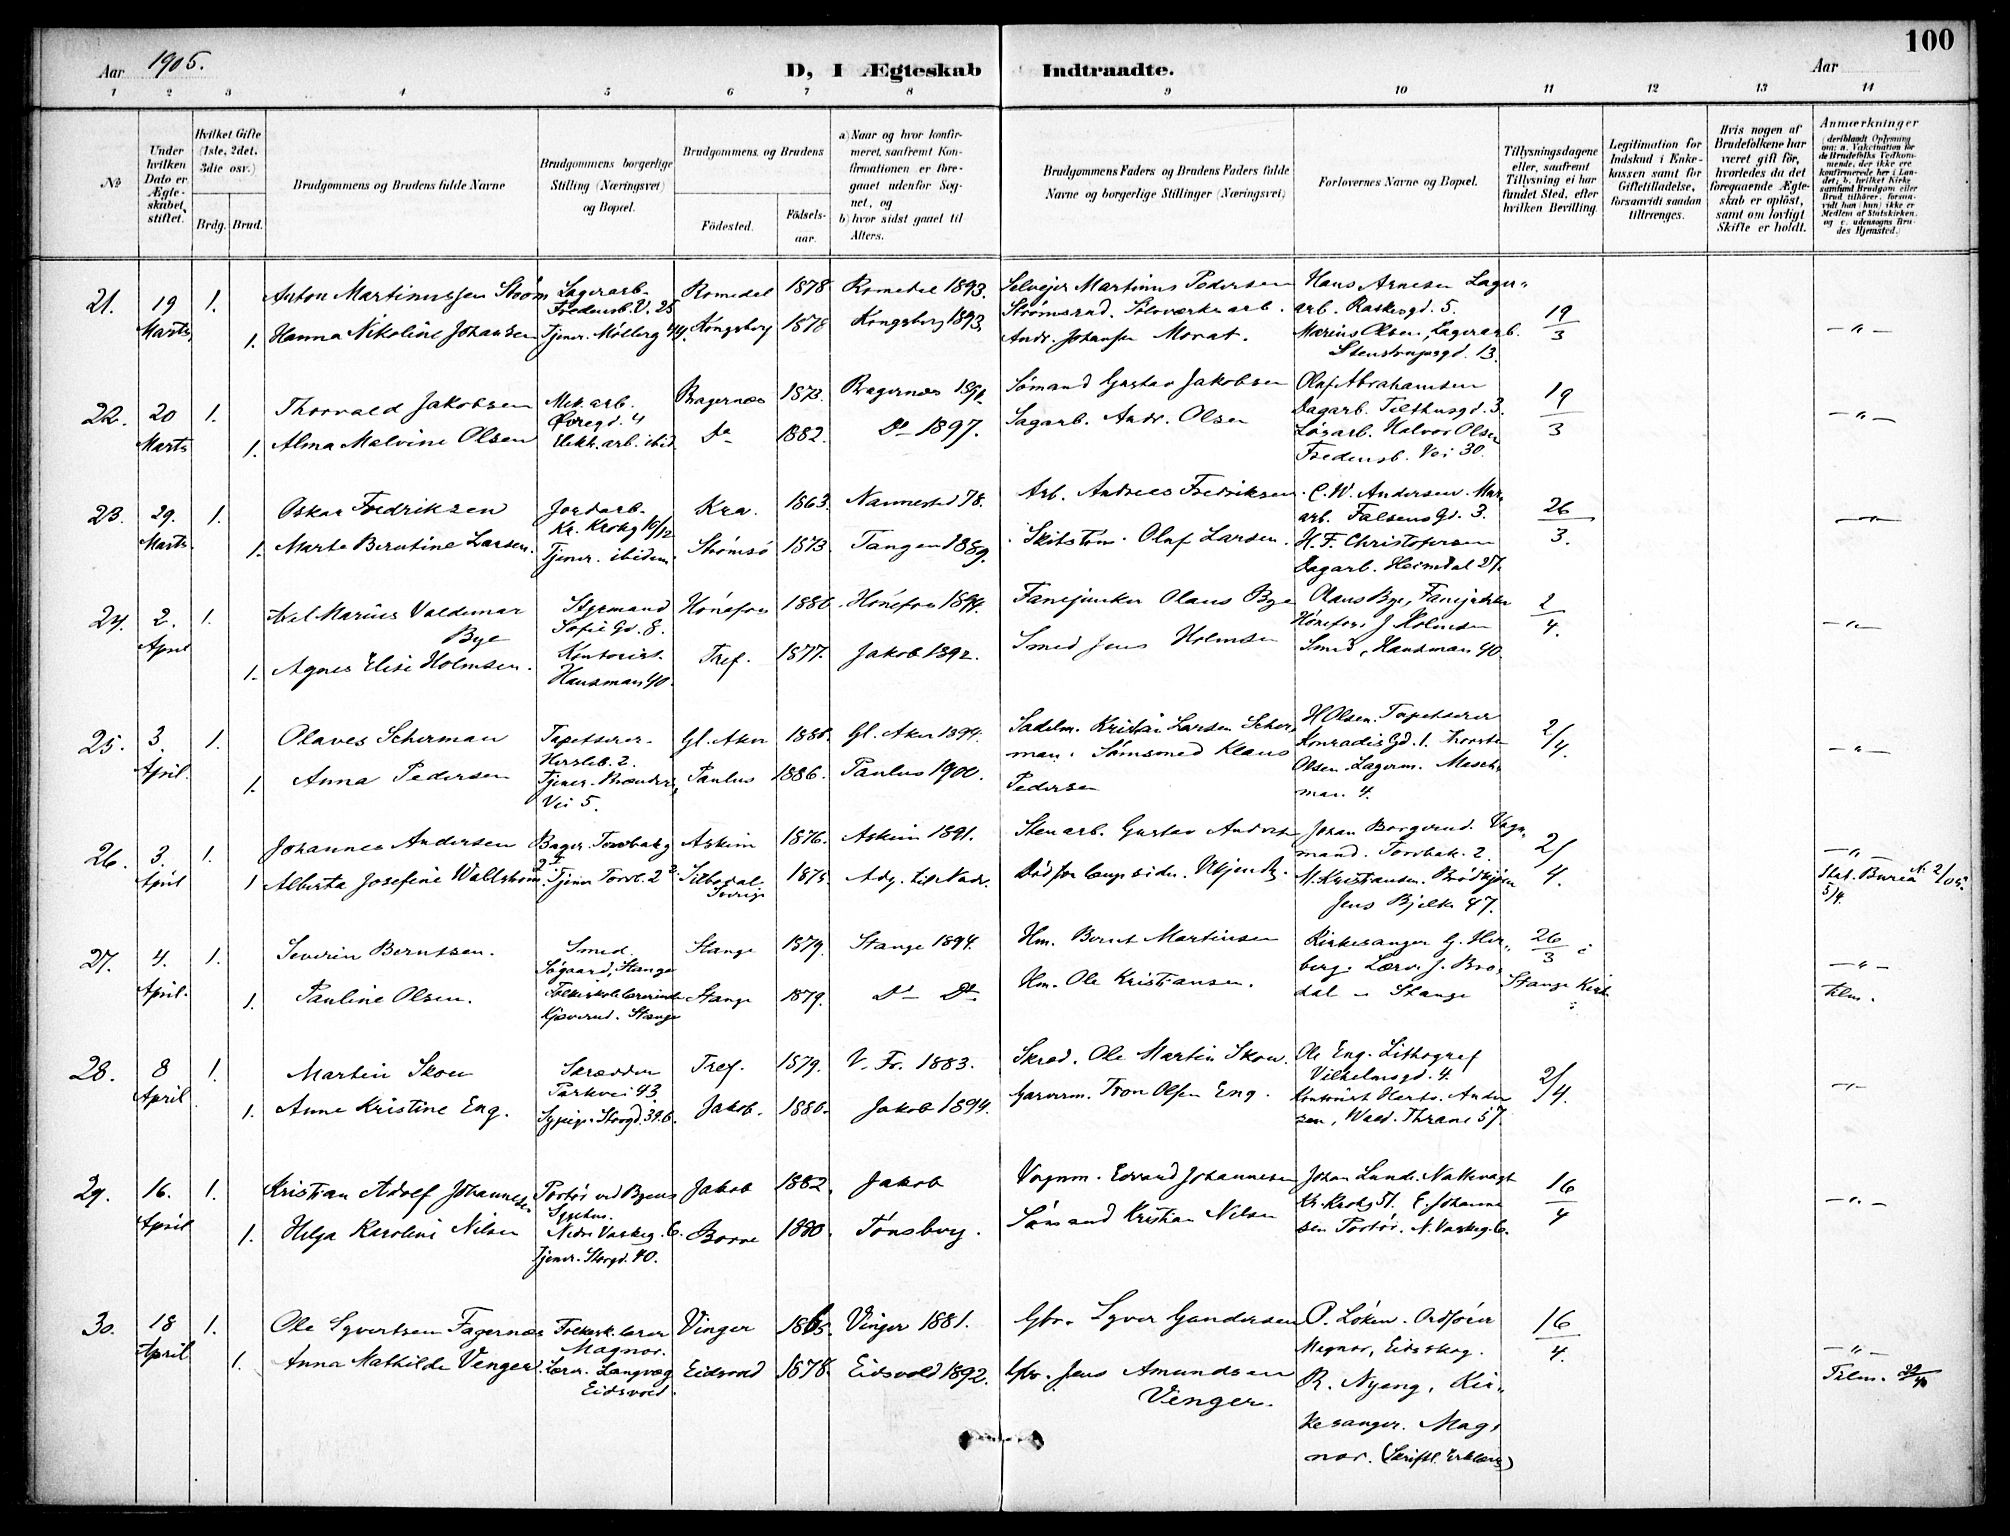 100
Aar 1905.
D, I Ægteskab Indtraadte.
Aar
1 2 3 4 5 6 7 8 9 10 11 12 13 14
No
Under hvilken Dato er Ægteskabet stiftet.
Hvilket Gifte (1ste, 2det, 3die osv.)
Brdg. Brud.
Brudgommens og Brudens fulde Navne
Brudgommens borgerlige Stilling (Næringsvei) og Bopæl.
Brudgommens og Brudens
Födested. Födsels-aar.
a) Naar og hvor konfirmeret, saafremt Konfirmationen er foregaaet udenfor Sognet, og
b) hvor sidst gaaet til Alters.
Brudgommens Faders og Brudens Faders fulde Navne og borgerlige Stillinger (Næringsvei)
Forlovernes Navne og Bopæl.
Tillysningsdagene eller, saafremt Tillysning ei har fundet Sted, efter hvilken Bevilling.
Legitimation for Indskud i Enkekassen samt for Giftetilladelse, forsaavidt saadan tiltrænges.
Hvis nogen af Brudefolkene har været gift för, hvorledes da det foregaaende Ægteskab er oplöst, samt om lovligt Skifte er holdt.
Anmærkninger
21. 19 Marts 1. Anton Martinussen Strøm Lagerarb. Fredensb. V. 25 Romedal 1878 Romedal 1893. Selveier Martinus Pedersen Strømsrud. Hans Arnesen Lagerarb. Raskesgd. 5. 19/3
1. Hanna Nikoline Johansen Tjener. Møllerg 44. Kongsberg 1878 Kongsberg 1893. Sølvværksarb. Andr. Johansen Morat. Marius Olsen, Lagerarb. Stenstrupsgd. 13. -"-
22. 20 Marts 1. Thorvald Jakobsen Mek. arb. Øvregd. 4 Bragernes 1873. Bragernes Sømand Gustav Jakobsen Olaf Abrahamsen Dagarb. Tofthusgd. 3. 19/3
1. Alma Malvine Olsen Elektr. arb. ibid. Do 1882. Do 1897. Sagarb. Andr. Olsen Halvor Olsen Fredensb. Vei 30. -"-
23. 29. Marts 1. Oskar Fredriksen Jordarb. Kr. Krohg 10/12 Kra. 1863. Nannestad 78. Arb. Andreas Fredriksen C. W. Andersen. Mur arb. Falsens Gd. 3. 26/3.
1. Marte Berntine Larsen. Tjener. ibidem. Strømsø 1873. Tangen 1889. Skibstøm. Olaf Larsen. H. F. Christofersen Dagarb. Heimdal 27. -"-
24. 2. April 1. Axel Marius Valdemar Bye Styrmand Sofie Gd. 8. Hønefos 1880. Hønefos 1894. Fanejunker Olaus Bye Olaus Bye, Fanejunker Hønefos. J Holmsen 2/4.
1. Agnes Elise Holmsen. Kontorist. Hausman 40. Tref. 1877. Jakob 1892. Smed Jens Holmsen Smed, Hausman 40. -"-
25. 3. April. 1. Olaves Scherman Tapetserer. Hersleb. 2. Gl. Aker 1880. Gl. Aker 1894. Sadelm. Kristian Larsen Scherman. H Olsen. Tapetserer Konradis Gd. 1. 2/4.
1. Anna Pedersen Tjener. Vei 5. Paulus 1886. Paulus 1900. Sømsmed Klaus Pedersen Olsen. Lagerm. Maschman. 4. -"-
26. 3. April 1. Johannes Andersen Bager. Torvbakg Askim 1876. Askim 1891. Stenarb. Gustav Andersen Johan Borgerud. Vognmand. Torvbak. 2. 2/4.
1 Alberta Josefine Wallstrøm. Tjener Torvb. 2 Silbodal. Sverige 1875. Adg. til Nadv. M. Kristiansen. Brødkjører Jens Bjelke 47. Stat. Burea 5/4.
27. 4. April. 1. Severin Berntsen. Smed. Søgaard, Stange Stange 1879. Stange 1894. Hm. Bernt Martinsen Kirkesanger G. Herberg. 26/3 i
1. Pauline Olsen. Folkeskolelærerinde Kjæverud. Stange Stange 1879. Do Do Hm. Ole Kristiansen. Lærer J. Brodal - Stange Stange Kirke -"- Film.
28. 8 April 1. Martin Skou Skrædder Parkvei 43. Tref. 1879. V. Fr. 1883. Skræd. Ole Martin Skou. Ole Eng. Lithograf Vilhelmsgd. 4. 2/4.
1. Anne Kristine Eng. Sypige. Storgd. 39b. Jakob. 1880. Jakob 1894. Garverm. Tron Olsen Eng. Kontorist Herbr. Andersen, Wald. Thrane 57. -"-
29. 16. April 1. Kristian Adolf Johannesen Portør ved Byens Sygehus. Nedre Vaskeg. 6. Jakob 1882. Jakob Vognm. Edvard Johannesen Johan Lund. Nattevagt Kr. Krohg 51. 16/4
1. Helga Karoline Nilsen Tjener. Storgd. 40. Borre 1880. Tønsberg. Sømand Kristian Nilsen E. Johannesen Portør. N. Vaskeg. 6. -"-
30. 18 April 1. Ole Syvertsen Fagernæs Folkesk. lærer Magnor. Vinger 1865. Vinger 1881. Gbr. Syver Gundersen P. Løken. Ordfører Magnor, Eidsskog. 16/4.
1. Anna Mathilde Venger. Lærer. Langvæg Eidsvold. Eidsvold 1878. Eidsvold 1892. Gbr. Jens Amundsen Venger. R. Nyeng, Kirkesanger. Magnor. (Skriftl. Erklæring) -"- Film.